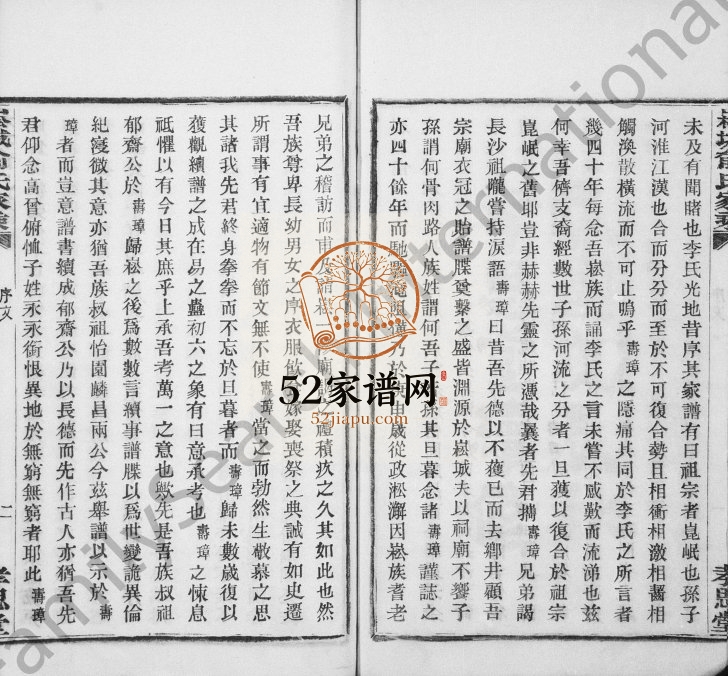 未及有聞睹也李氏光地昔序其家譜有曰祖宗者崑岷也孫子
河淮江漢也合而分分而至於不可復合勢且相衝相激相醫相
觸渙散橫流而不可止嗚乎壽璋之隱痛其同於李氏之所言者
幾四十年每念吾崧族而誦李氏之言未嘗不感歎而流涕也茲
何幸吾儕支裔經數世子孫河流之分者一旦獲以復合於祖宗
崑岷之舊耶豈非赫赫先靈之所憑哉曩者先君攜壽璋兄弟謁
長沙祖隴嘗持淚語壽璋曰昔吾先德以不獲已而去鄉井顧吾
宗廟衣冠之貽譜牒奠繫之盛皆淵源於崧城夫以祠廟不饗子
孫謂何骨肉路人族姓謂何吾子孫其旦暮念諸壽璋謹誌之
亦四十餘年而馳歲從政淞澥因崧族耆老
兄弟之稽訪而甫積疚之久其如此也然
吾族尊卑長幼男女之序衣服嫁娶喪祭之典誠有如史遷
所謂事有宜適物有節文無不使壽璋當之而勃然生敬慕之思
其諸我先君終身拳拳而不忘於旦暮者而壽璋歸未數歲復以
獲觀續譜之成在易之蠱初六之象有曰意承考也壽璋之悚息
祗懼以有今日其庶乎上承吾考萬一之意也歟先是吾族叔祖
郁齋公於壽璋歸崧之後為數數言續事譜牒以為世變詭異倫
紀寖微其意亦猶吾族叔祖怡園麟昌兩公今茲舉譜以示於壽
璋者而豈意譜書續成郁齋公乃以長德而先作古人亦猶吾先
君仰念高曾俯恤子姓永永銜恨異地於無窮無窮者耶此壽璋
序文
二
孝思堂
孝思堂
52家谱网
52jiapu.com
FamilySearch International